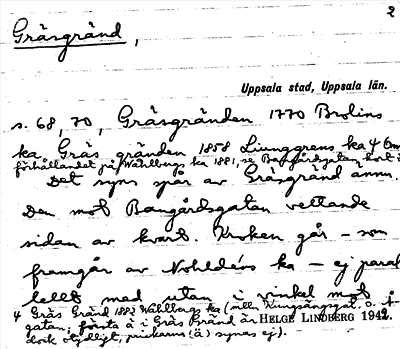 2
Gräsgränd,
Uppsala stad, Uppsala län.
s. 68, 70, Gräsgränden 1770 Brolins
ka, Gräs gränden 1858 Ljunggrens ka 4
förhållandet på Wahlbergs ka 1881, se Bangårdsgatan
Det syns spår av Gräsgränd ännu.
Den mot Bangårdsgatan vettande
sidan av kvart. Kroken går – som
framgår av Nohldéns ka – ej paral
lellt med utan i vinkel mot
4 Gräs Gränd 1882 Wahlbergs ka (mellan Kungsängsgat. o. Å-
gatan; första ä i Gräs Gränd är HELGE LINDBERG 1942.
dock otydligt, prickarna (ä) synas ej).